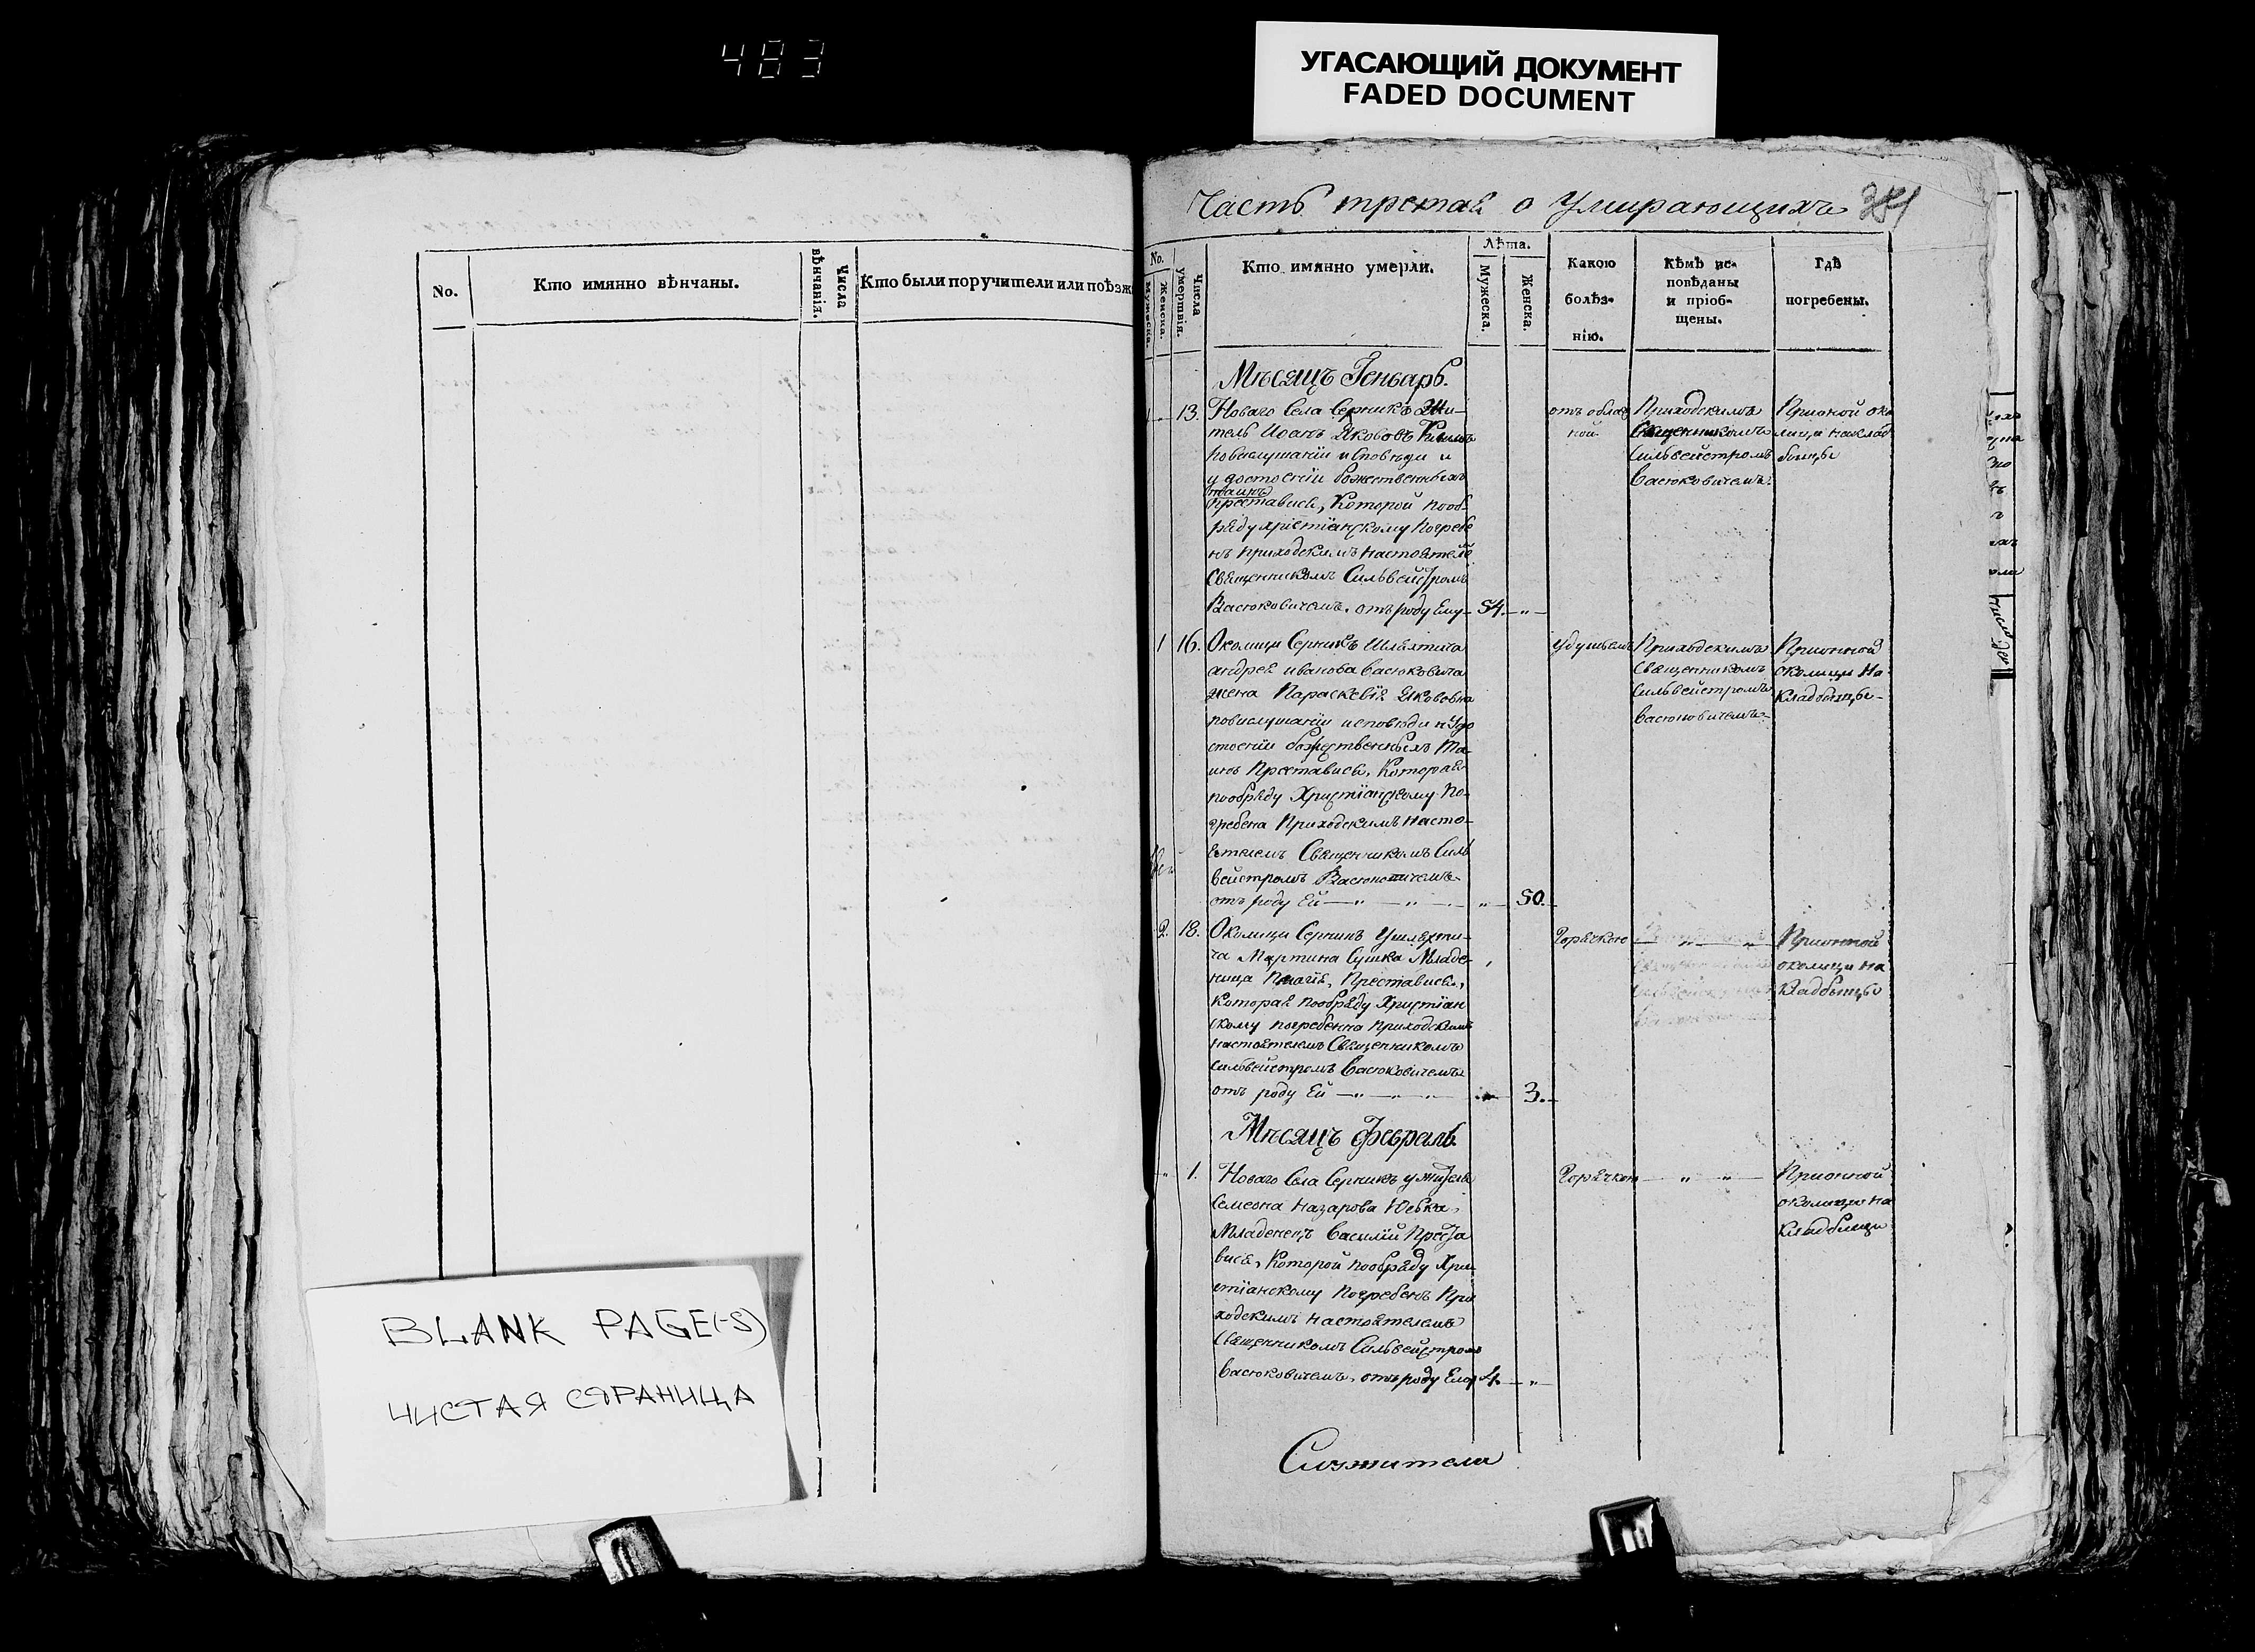 483
УГАСАЮЩИЙ ДОКУМЕНТ
FADED DOCUMENT
No.
Кто имянно вѣнчаны.
Числа вѣнчанія.
Кто были поручители или поѣзж
BLANK PAGE(-S)
ЧИСТАЯ СТРАНИЦА
Часть третая о Умирающихъ
No.
Мужеска.
Женска.
Числа умертвія.
Кто имянно умерли.
Лѣта.
Мужеска.
Женска.
Какою
болѣз-
нію.
Кѣмъ ис-
повѣданы
и пріоб-
щены.
Гдѣ
погребены.
Мѣсяцъ Генварь.
13.
Новаго Села Серникъ Жи-
тель Иоанъ Якововъ
повыслушаніи исповѣди и
удостоеніи божественныхъ
таинъ
преставися, Которой пооб-
ряду христіанскому погребе
нъ приходскимъ настоятеле
Священникомъ Сильвейстромъ
Васюковичемъ. отъ роду Ему 54. "
Приходскимъ
Священникомъ
Сильвейстромъ
Васюковичемъ.
1 16.
Околицы Серникъ Шляхтича
андрея иванова васюковича
жена Параскевія Якововна
повыслушаніи исповѣди и Удо
стоеніи божественныхъ Та-
инъ Преставися, Которая
пообряду Христіанскому По-
гребена Приходскимъ Насто-
ятелемъ Священникомъ Силь
вейстромъ Васюковичемъ
отъ роду Ей — " — " — " 50.
удушьемъ
Приходскимъ
Священникомъ
Сильвейстромъ
Васюковичемъ
околицы На
Кладбищѣ
2. 18.
Околицы Серникъ Ушляхти-
ча Мартина Сушка Младе-
ница Преставися,
Которая пообряду Христіан
скому погребенна приходскимъ
настоятелемъ Священникомъ
Сильвейстромъ Васюковичемъ
отъ роду Ей — " — " — 3.
Горячкою
" "
околицы на
Кладбищѣ
Мѣсяцъ Февраль.
" 1.
Новаго Села Серникъ ужителя
Семеона Назарова
Младенецъ Василій Преста
вися, Которой пообряду Хри
стіанскому Погребенъ При
ходскимъ Настоятелемъ
Священникомъ Сильвейстромъ
Васюковичемъ, отъ роду Ему 4. "
Горячкою
" "
околицы на
Кладбищи